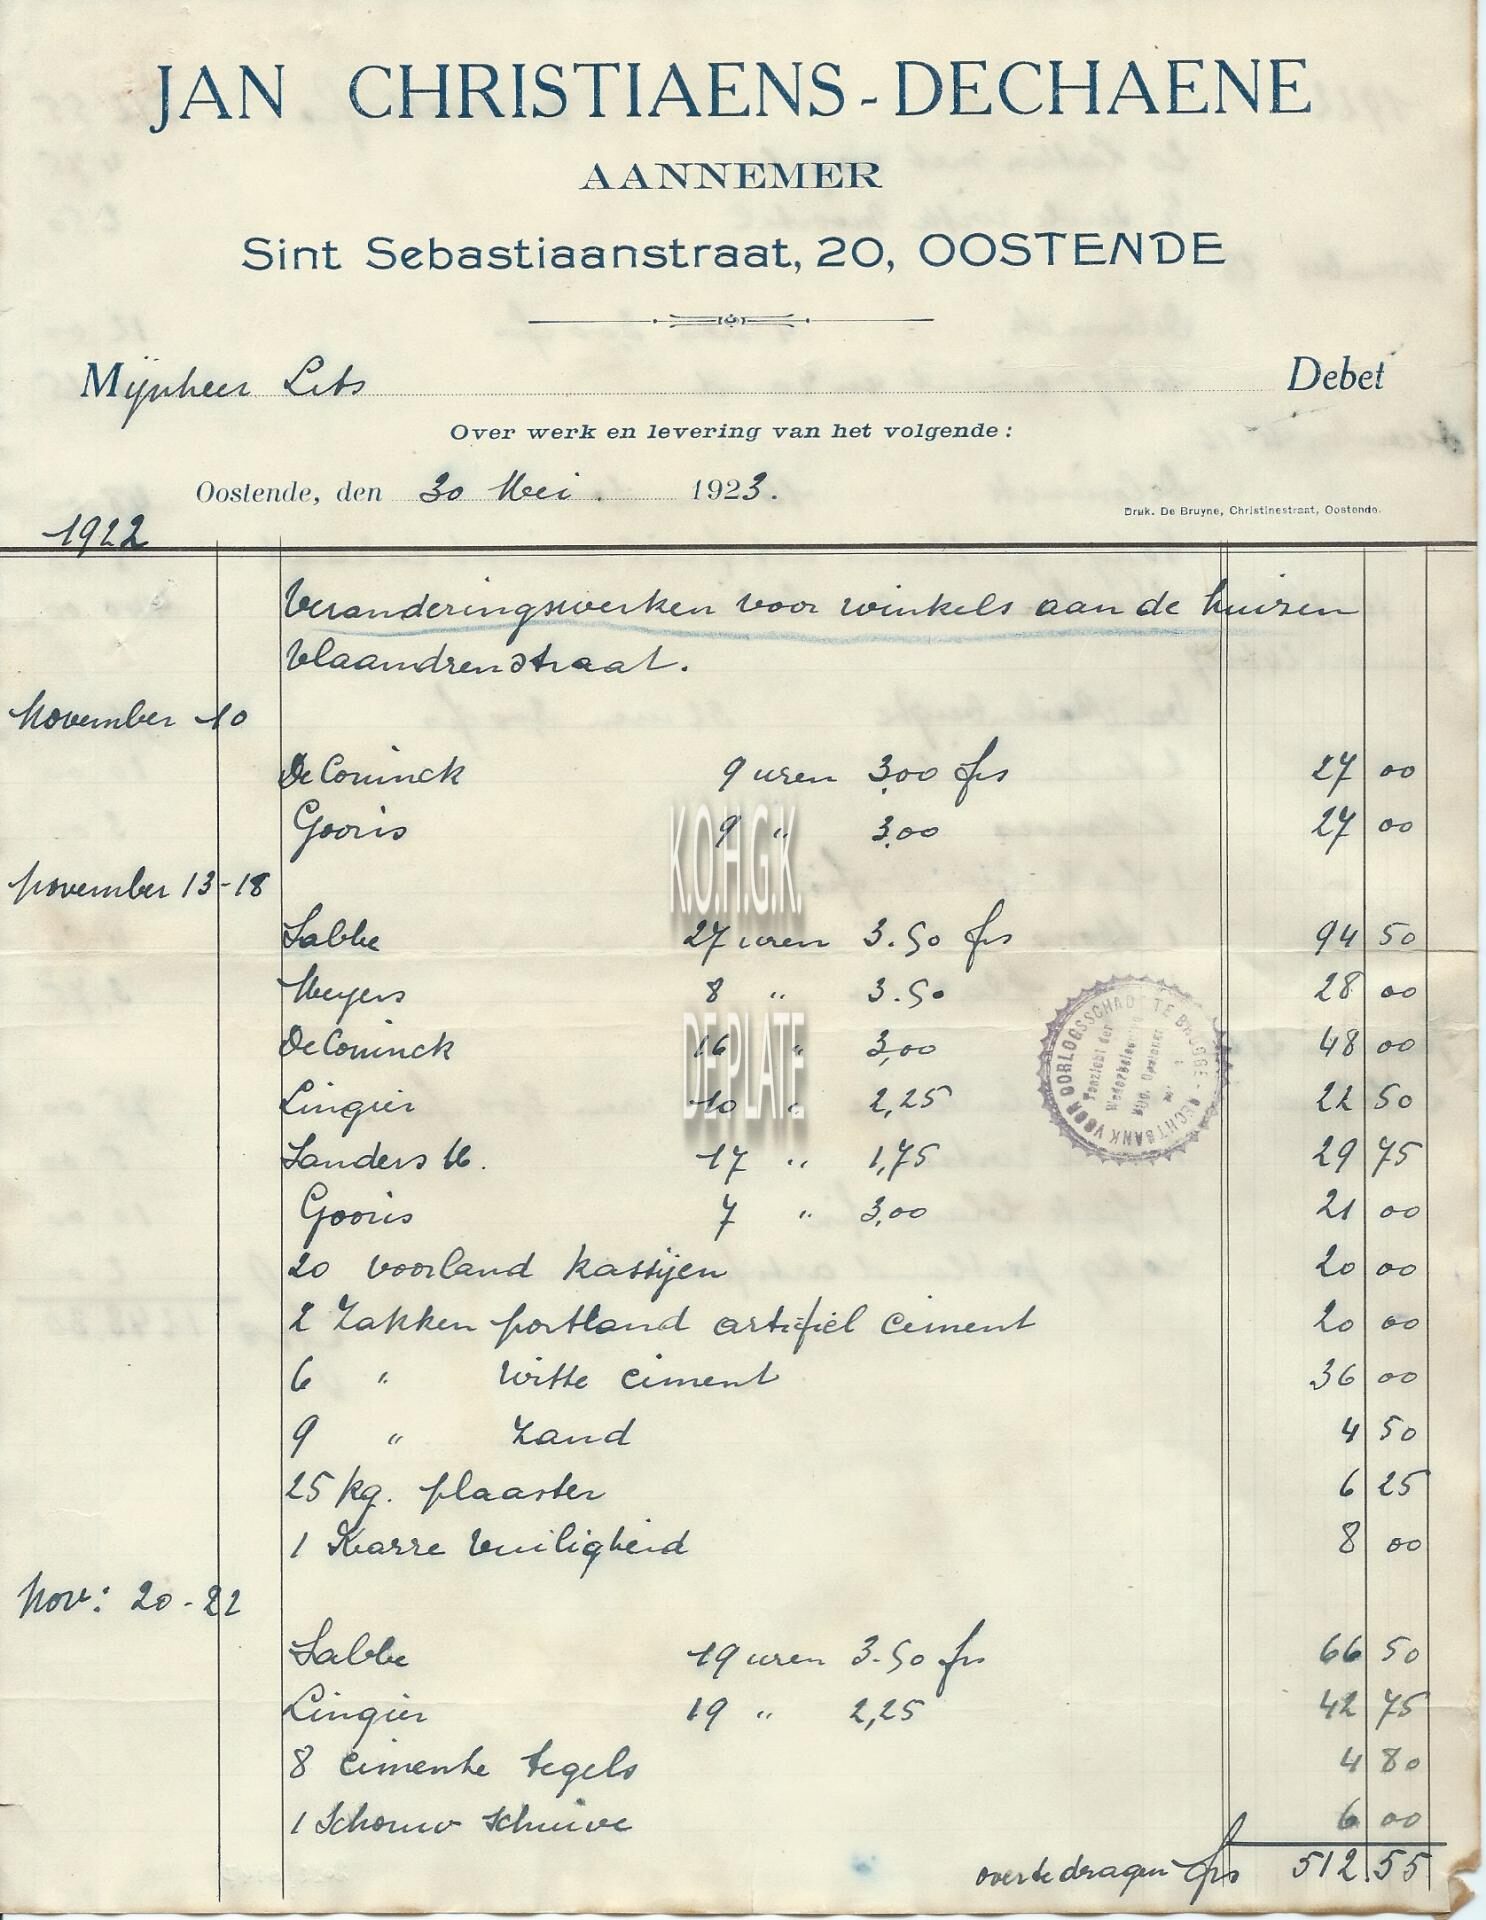 JAN CHRISTIAENS-DECHAENE
AANNEMER
Sint Sebastiaanstraat, 20, OOSTENDE
Mijnheer Lets Debet
Over werk en levering van het volgende:
Oostende, den 30 Mei. 1923.
Druk. De Bruyne, Christinestraat, Oostende.
1922
Veranderingswerken voor winkels aan de huizen
Vlaandrenstraat.
November 10
DeConinck 9 uren 3,00 frs 27 00
Gooris 9 " 3,00 27 00
K.O.H.G.K.
november 13-18
Sabbe 27 uren 3.50 frs 94 50
Meyers 8 " 3.50 28 00
DE PLATE
DeConinck 16 " 3,00 48 00
Lingier 10 " 2,25 22 50
Sanders M. 17 " 1,75 29 75
Gooris 7 " 3,00 21 00
RECHTBANK VOOR OORLOGSSCHADE TE BRUGGE
20 voorland kassijen 20 00
2 Zakken portland artifiël ciment 20 00
6 " Witte ciment 36 00
9 " Zand 4 50
25 kg. plaaster 6 25
1 Karre Vuiligheid 8 00
Nov: 20-22
Sabbe 19 uren 3.50 frs 66 50
Lingier 19 " 2,25 42 75
8 cimente tegels 4 80
1 Schouw schuive 6 00
over te dragen frs 512.55